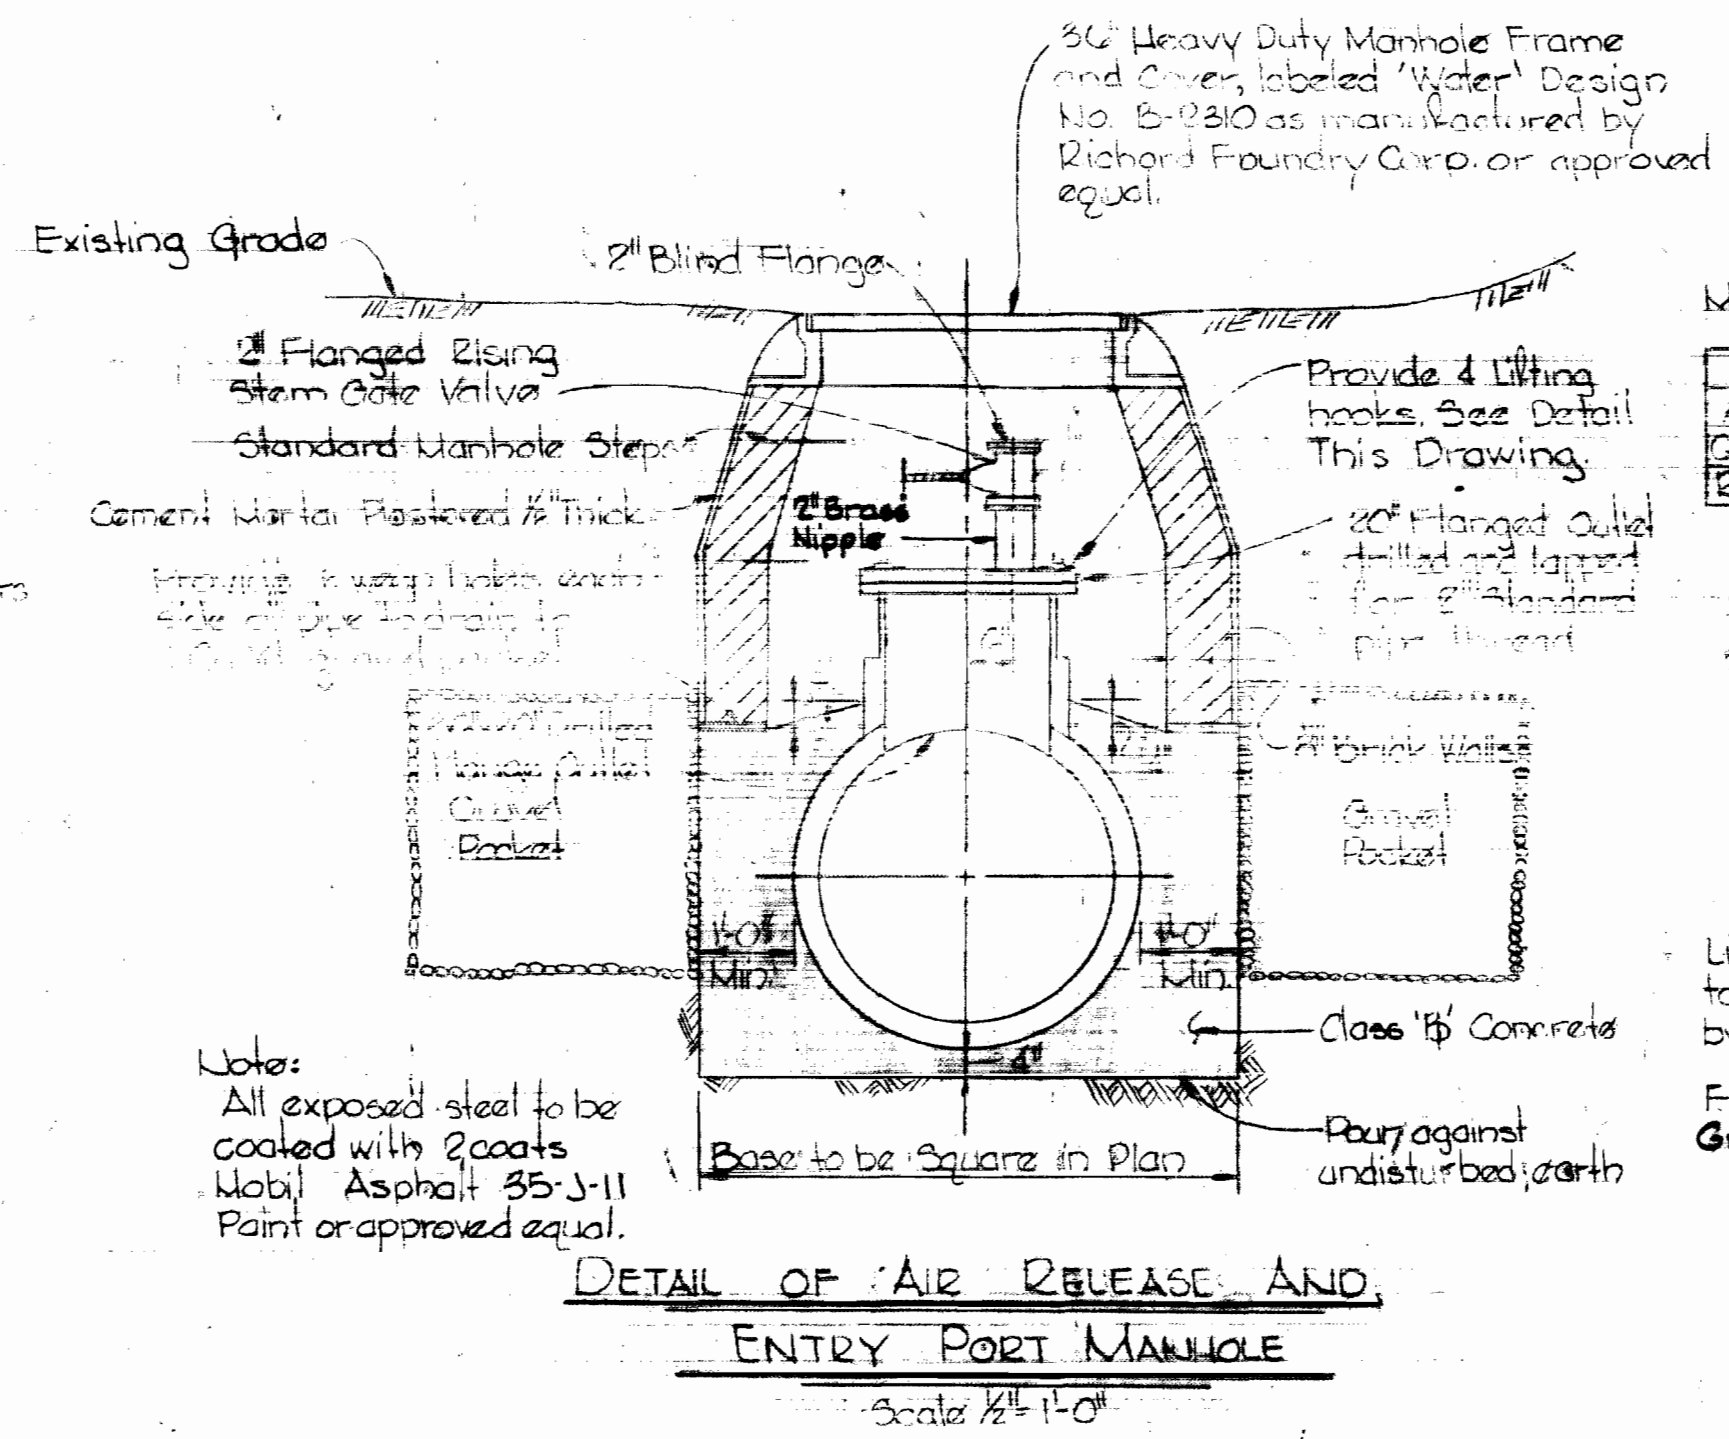 36" Heavy Duty Manhole Frame
and Cover, labeled 'Water' Design
No. B-2310 as manufactured by
Richard Foundry Corp. or approved
equal.
Existing Grade
2" Blind Flange
2" Flanged Rising
Stem Gate Valve
Standard Manhole Steps
Cement Mortar Plastered ½" Thick
weep holes each
side of pipe to drain to
gravel pocket
2" Brass
Nipple
Provide 4 Lifting
hooks. See Detail
This Drawing.
20" Flanged Outlet
drilled and tapped
for 2" Standard
pipe thread
Drilled
Flange Outlet
Gravel
Pocket
Brick Walls
Gravel
Pocket
6"
1'-0"
Min.
1'-0"
Min.
4"
Class 'B' Concrete
Pour against
undisturbed earth
Base to be Square in Plan
Note:
All exposed steel to be
coated with 2 coats
Mobil Asphalt 35-J-11
Paint or approved equal.
DETAIL OF AIR RELEASE AND
ENTRY PORT MANHOLE
Scale ½"=1'-0"